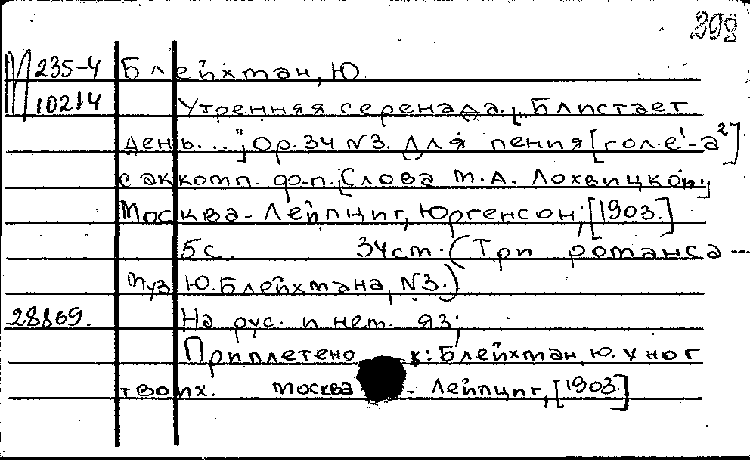 М 235-4 Блейхман, Ю.
10214 Утренняя серенада. „Блистает
день...“ Op. 34 №3. Для пения [сол. e¹-a²]
с аккомп. ф-п. [Слова М.А. Лохвицкой].
Москва-Лейпциг, Юргенсон, [1903.]
5с. 34см. (Три романса...
муз. Ю. Блейхмана, №3.)
28869. На рус. и нем. яз.
Приплетено к: Блейхман, Ю. У ног
твоих. Москва - Лейпциг, [1903]